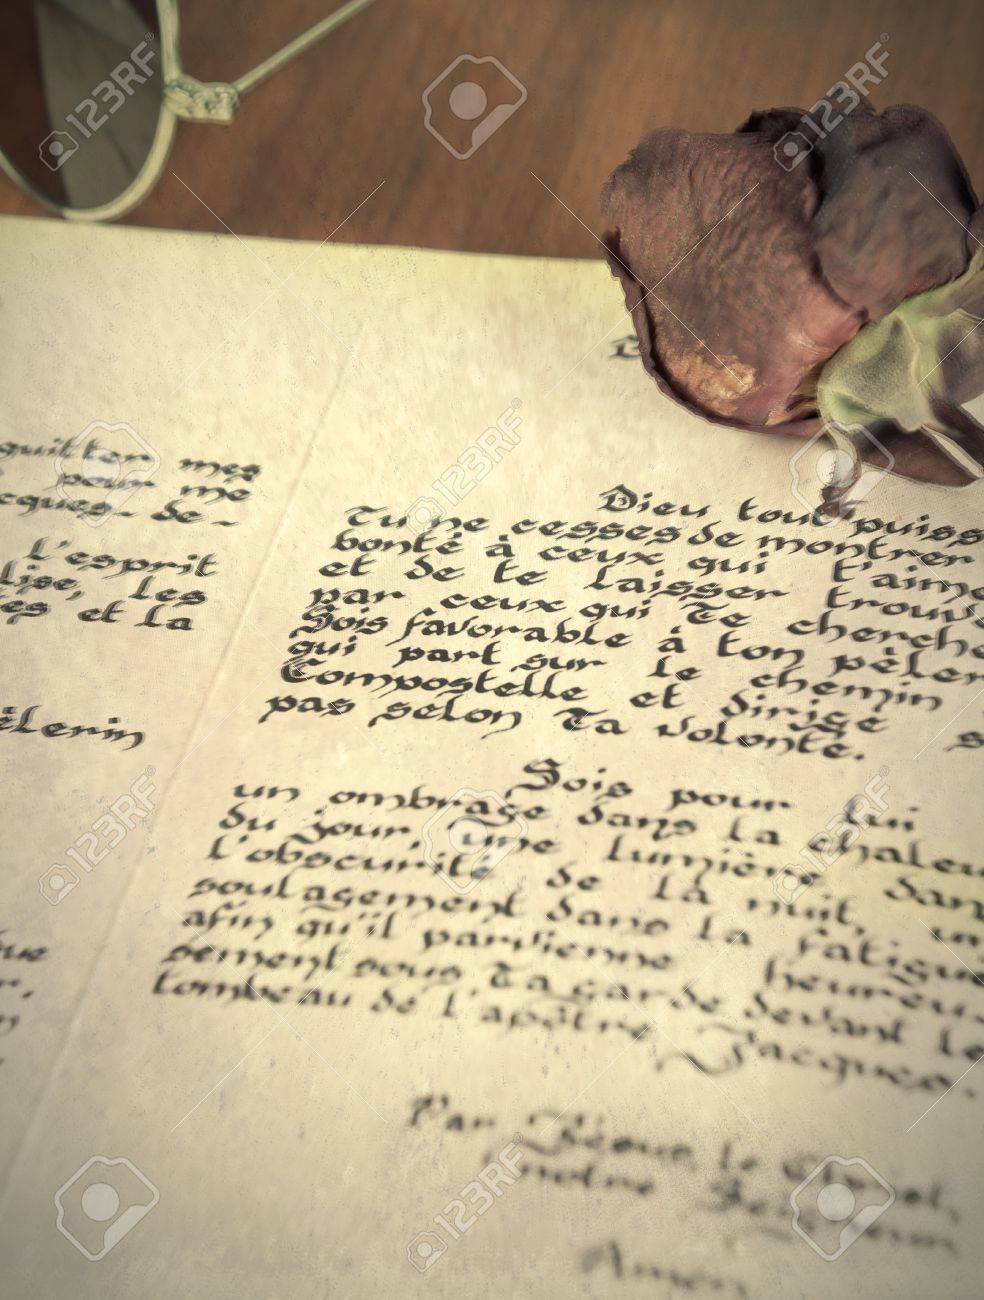 quitter mes
pour me
cques-de-
L'esprit
lise, les
es et la
èlerin
Dieu tout puiss
Tu ne cesses de montrer
bonté à ceux qui t'aime
et de te laisser trouve
par ceux qui Te cherche
Sois favorable à ton pèler
qui part sur le chemin
Compostelle et dirige s
pas selon Ta volonté.
Sois pour lui
un ombrage dans la chaleu
du jour, une lumière dan
l'obscurité de la nuit, un
soulagement dans la fatigue
afin qu'il parvienne heureu-
sement sous Ta garde devant le
tombeau de l'apôtre Jacques.
Par Jésus le Christ,
notre Seigneur
Amen
123RF